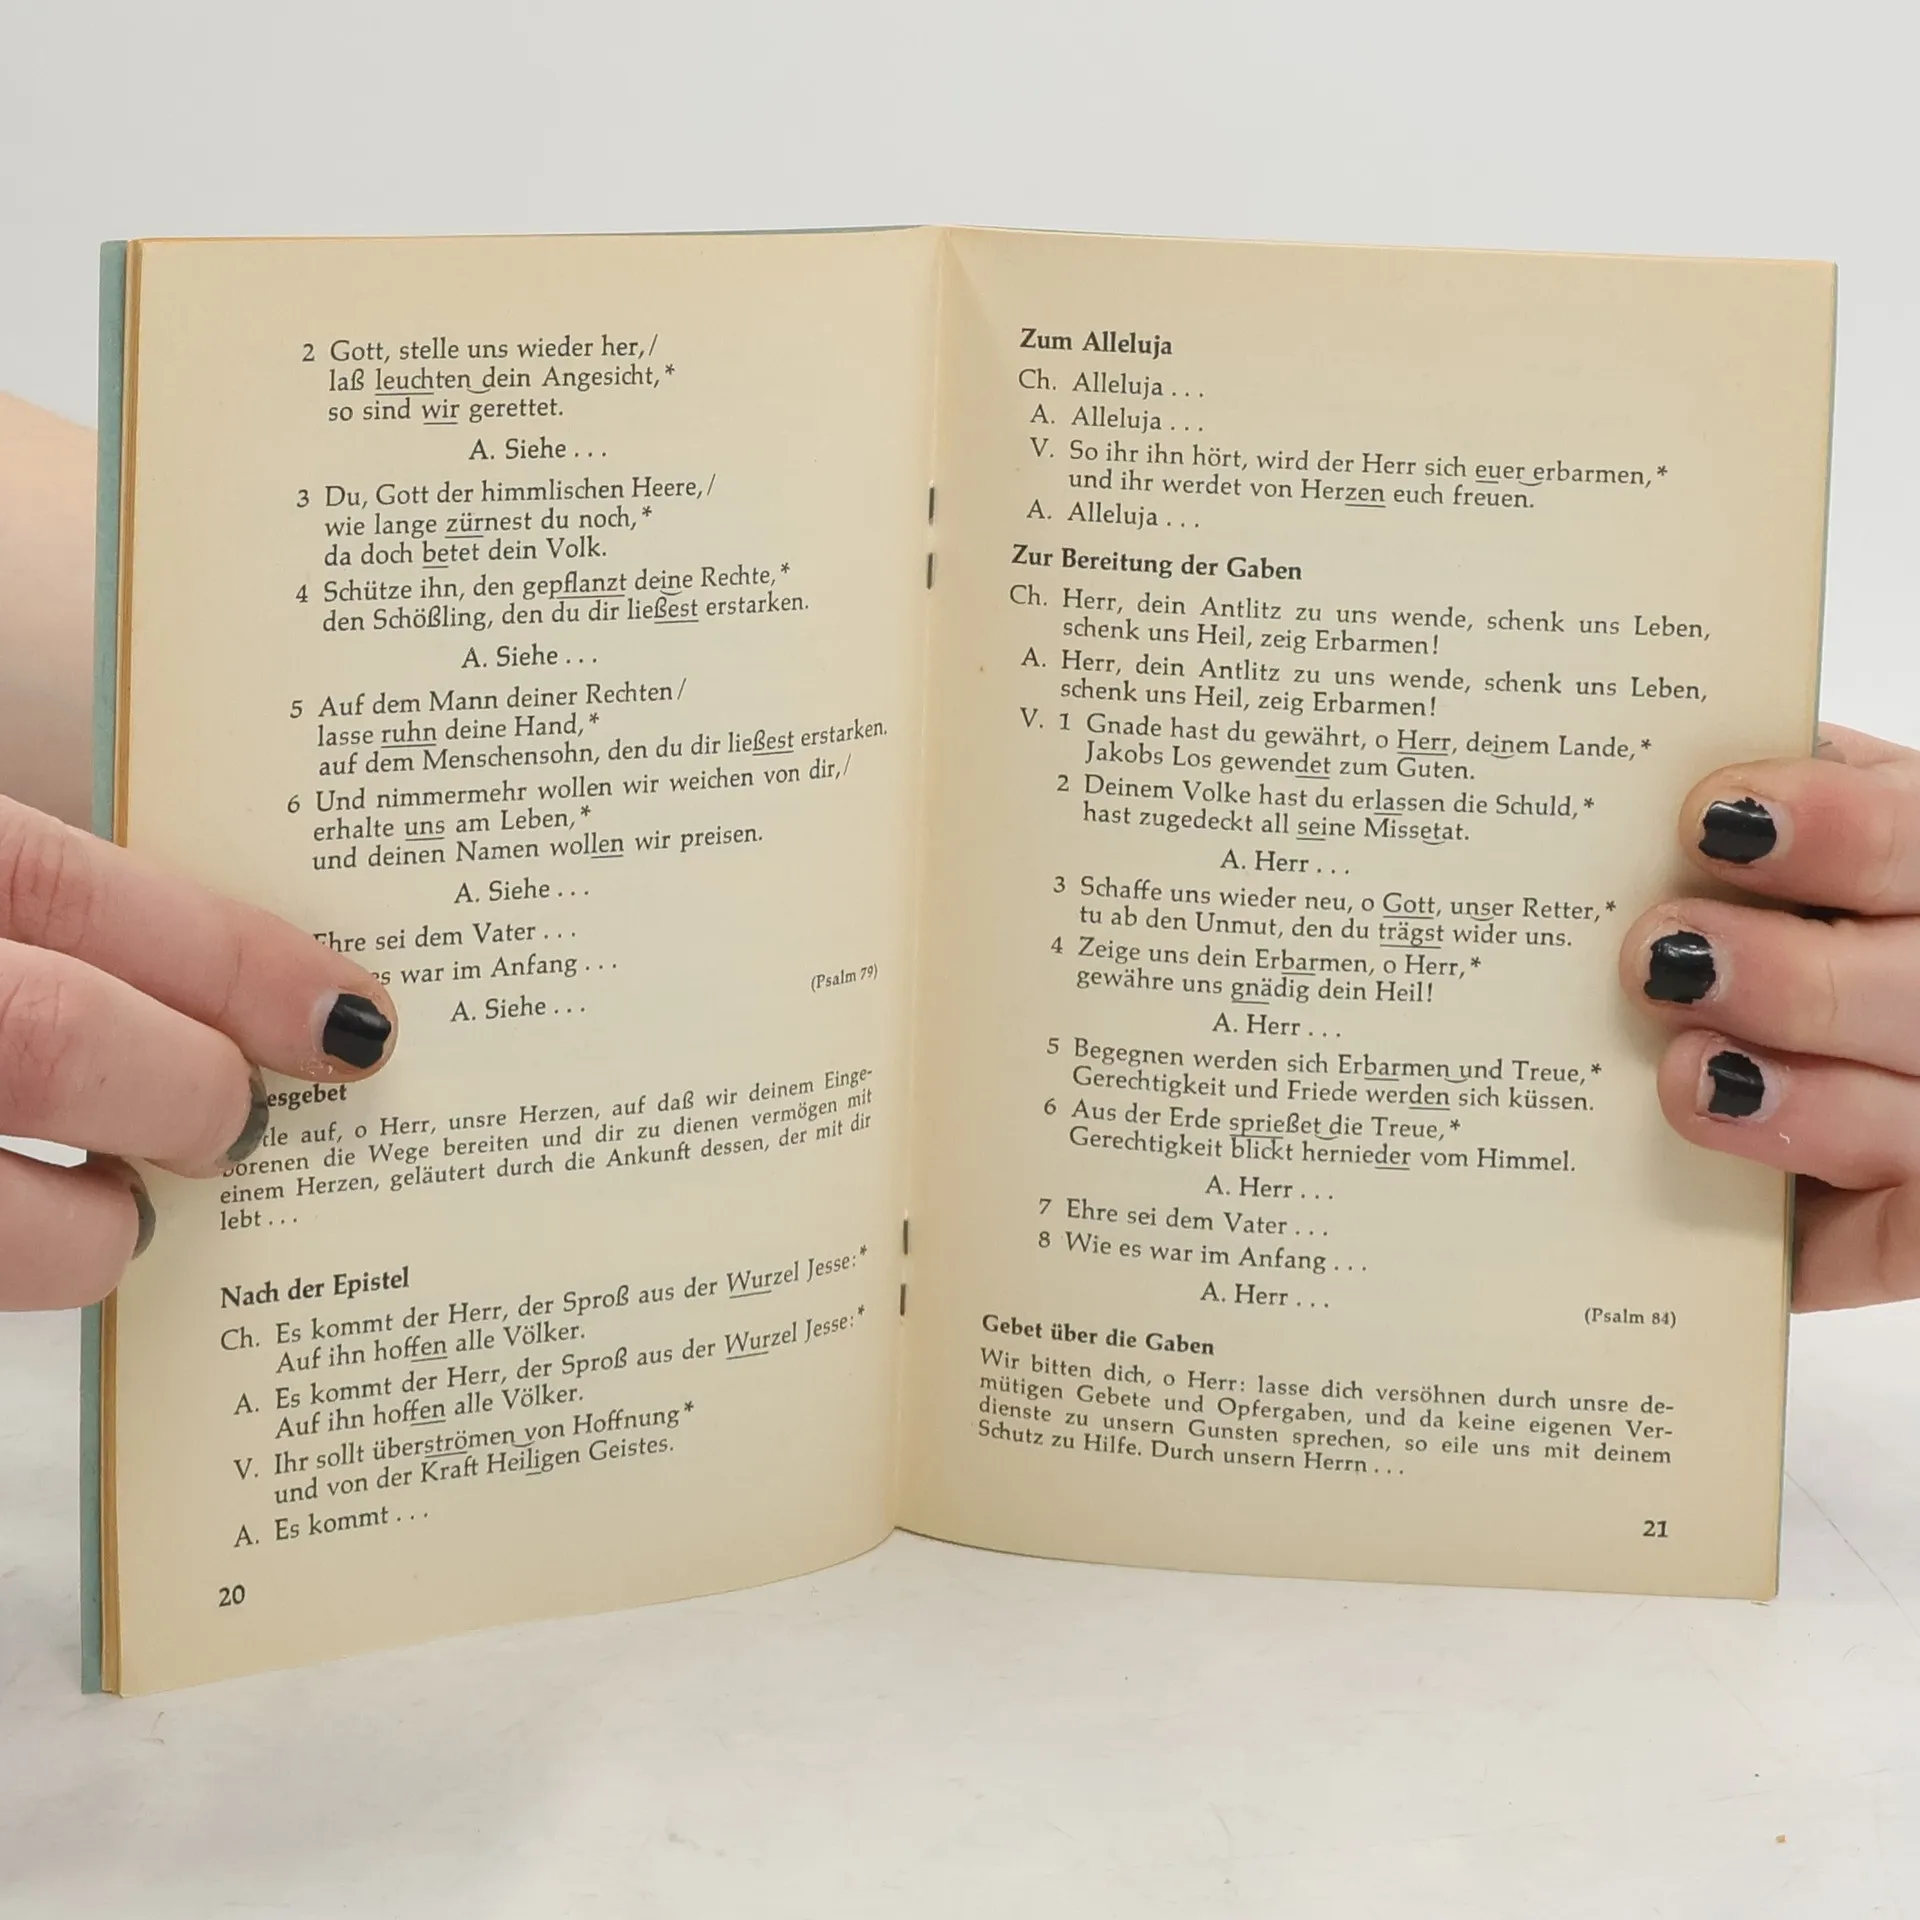 2 Gott, stelle uns wieder her,/
laß leuchten dein Angesicht,*
so sind wir gerettet.
A. Siehe . . .
3 Du, Gott der himmlischen Heere,/
wie lange zürnest du noch,*
da doch betet dein Volk.
4 Schütze ihn, den gepflanzt deine Rechte,*
den Schößling, den du dir ließest erstarken.
A. Siehe . . .
5 Auf dem Mann deiner Rechten/
lasse ruhn deine Hand,*
auf dem Menschensohn, den du dir ließest erstarken.
6 Und nimmermehr wollen wir weichen von dir,/
erhalte uns am Leben,*
und deinen Namen wollen wir preisen.
A. Siehe . . .
Ehre sei dem Vater . . .
es war im Anfang . . .
(Psalm 79)
A. Siehe . . .
esgebet
auf, o Herr, unsre Herzen, auf daß wir deinem Einge-
borenen die Wege bereiten und dir zu dienen vermögen mit
einem Herzen, geläutert durch die Ankunft dessen, der mit dir
lebt . . .
Nach der Epistel
Ch. Es kommt der Herr, der Sproß aus der Wurzel Jesse:*
Auf ihn hoffen alle Völker.
A. Es kommt der Herr, der Sproß aus der Wurzel Jesse:*
Auf ihn hoffen alle Völker.
V. Ihr sollt überströmen von Hoffnung*
und von der Kraft Heiligen Geistes.
A. Es kommt . . .
20
Zum Alleluja
Ch. Alleluja . . .
A. Alleluja . . .
V. So ihr ihn hört, wird der Herr sich euer erbarmen,*
und ihr werdet von Herzen euch freuen.
A. Alleluja . . .
Zur Bereitung der Gaben
Ch. Herr, dein Antlitz zu uns wende, schenk uns Leben,
schenk uns Heil, zeig Erbarmen!
A. Herr, dein Antlitz zu uns wende, schenk uns Leben,
schenk uns Heil, zeig Erbarmen!
V. 1 Gnade hast du gewährt, o Herr, deinem Lande,*
Jakobs Los gewendet zum Guten.
2 Deinem Volke hast du erlassen die Schuld,*
hast zugedeckt all seine Missetat.
A. Herr . . .
3 Schaffe uns wieder neu, o Gott, unser Retter,*
tu ab den Unmut, den du trägst wider uns.
4 Zeige uns dein Erbarmen, o Herr,*
gewähre uns gnädig dein Heil!
A. Herr . . .
5 Begegnen werden sich Erbarmen und Treue,*
Gerechtigkeit und Friede werden sich küssen.
6 Aus der Erde sprießet die Treue,*
Gerechtigkeit blickt hernieder vom Himmel.
A. Herr . . .
7 Ehre sei dem Vater . . .
8 Wie es war im Anfang . . .
A. Herr . . .
(Psalm 84)
Gebet über die Gaben
Wir bitten dich, o Herr: lasse dich versöhnen durch unsre de-
mütigen Gebete und Opfergaben, und da keine eigenen Ver-
dienste zu unsern Gunsten sprechen, so eile uns mit deinem
Schutz zu Hilfe. Durch unsern Herrn . . .
21